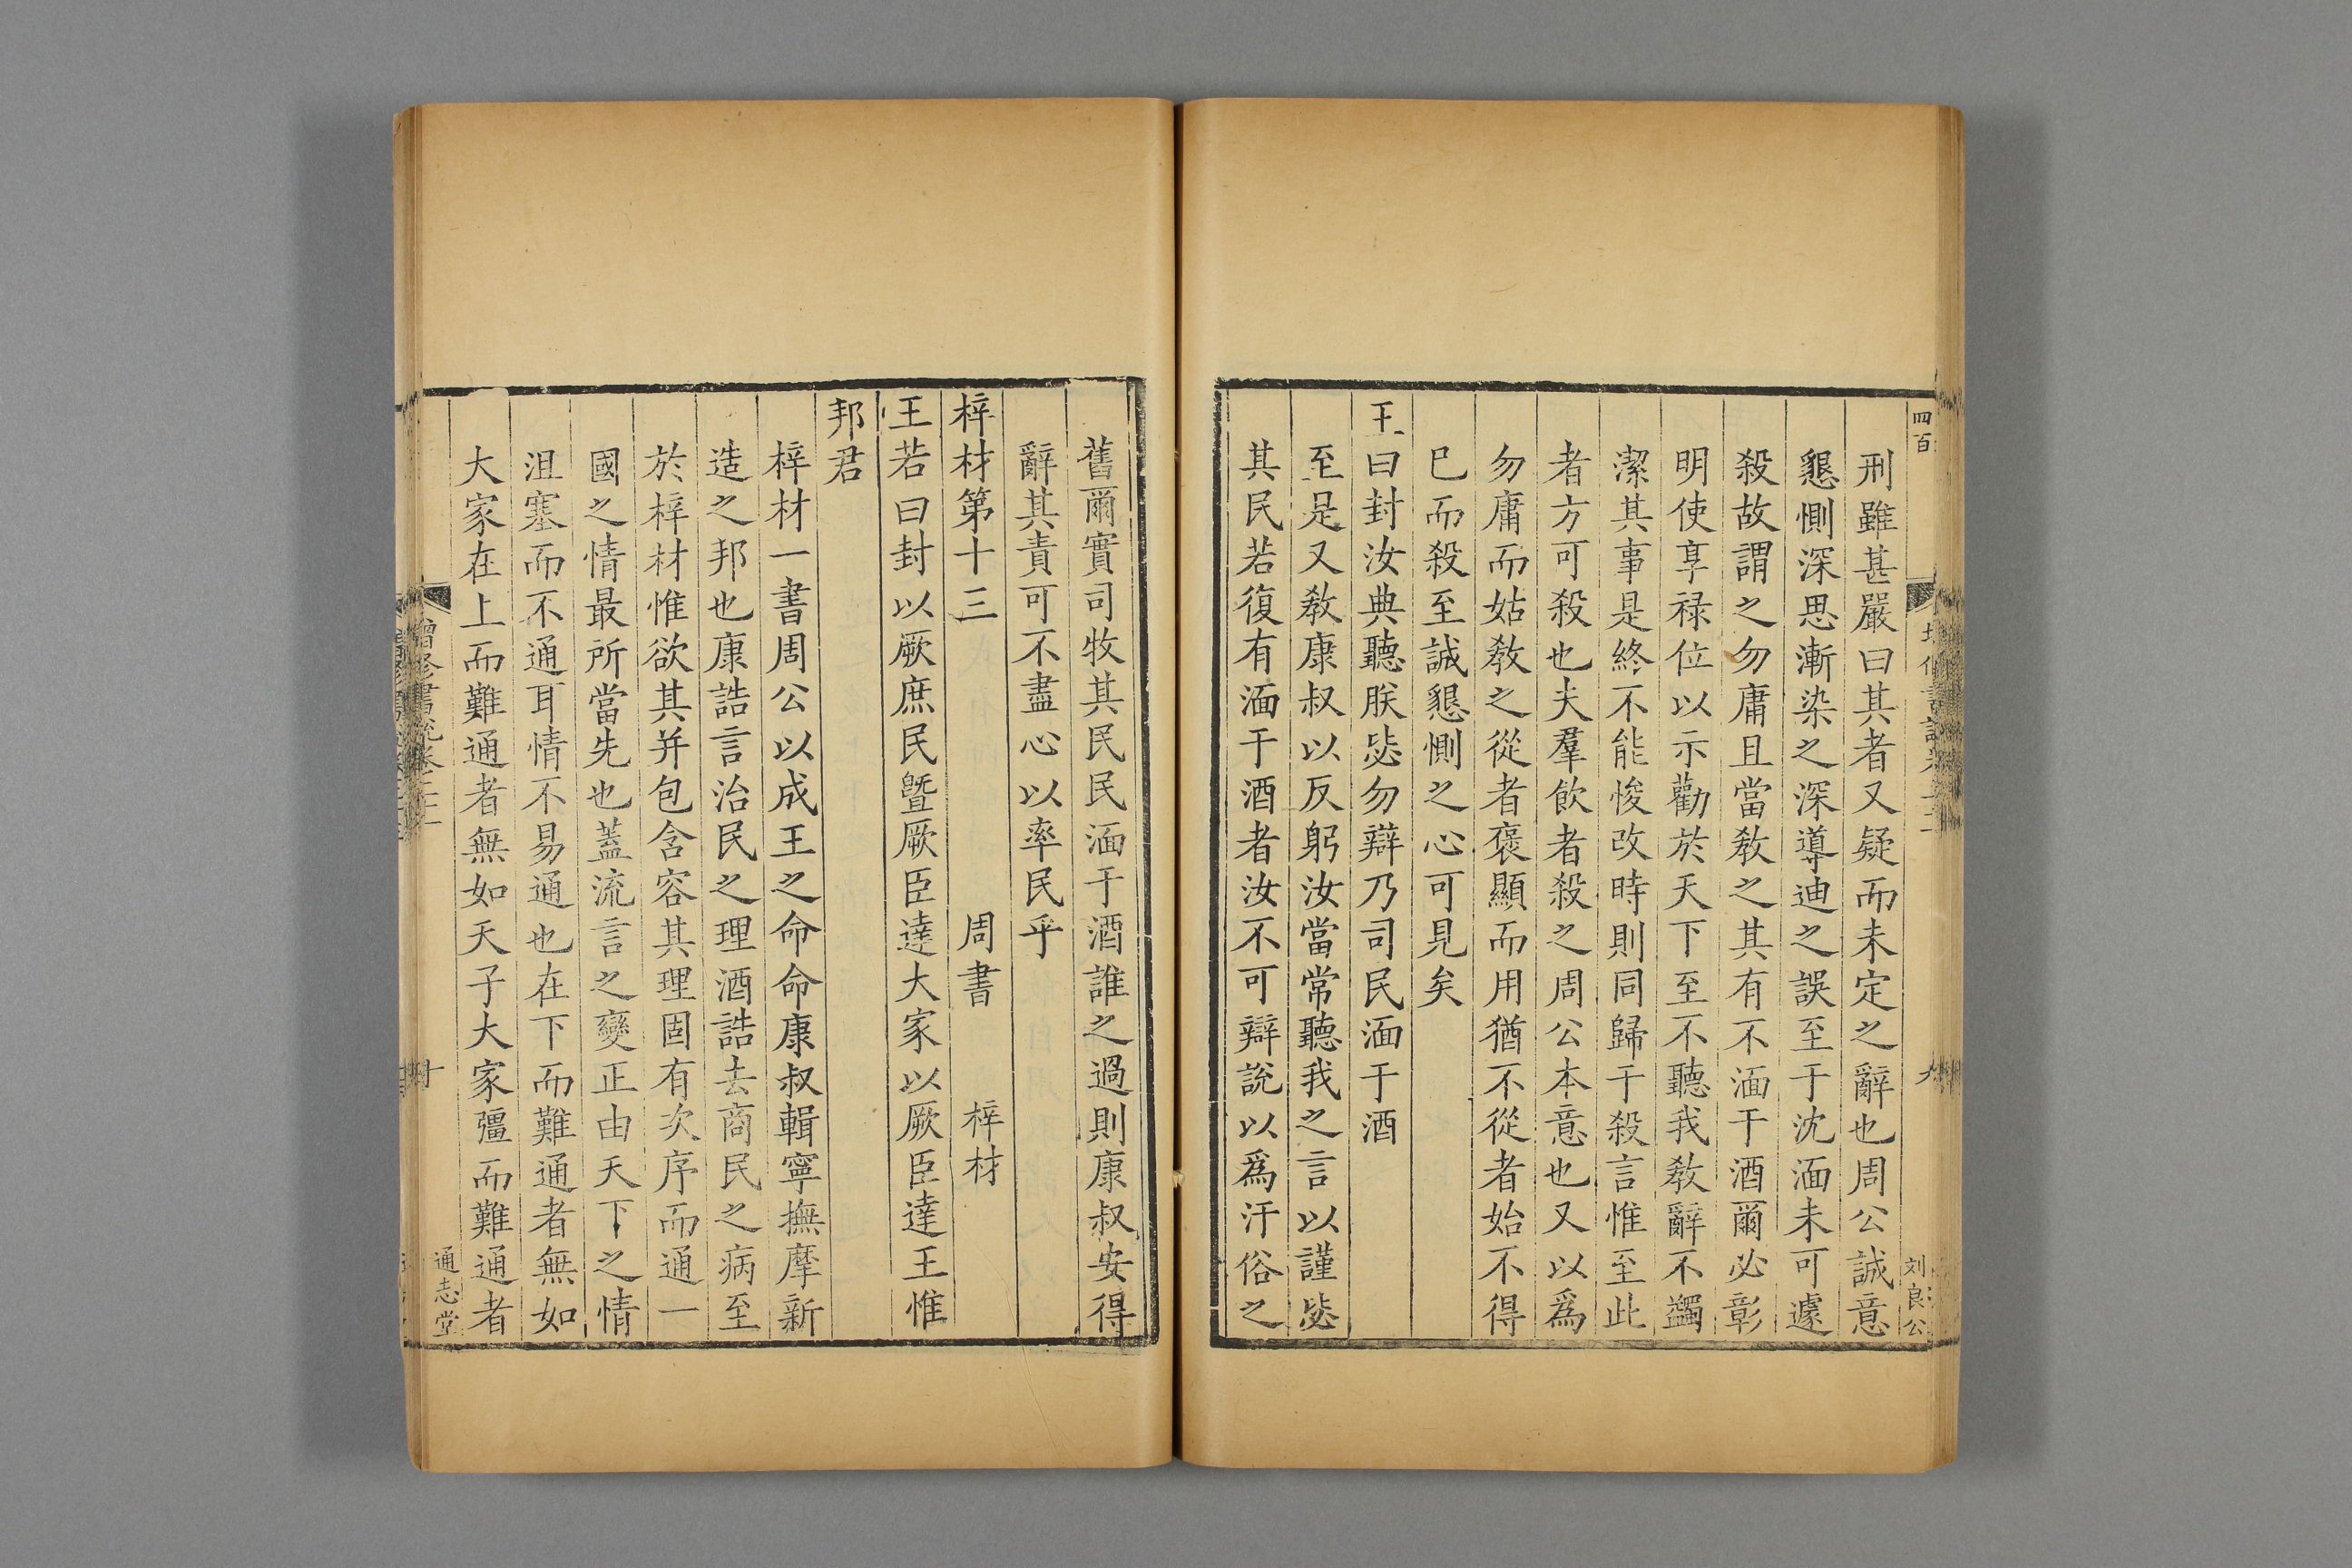 四百
刘良公
刑雖甚嚴曰其者又疑而未定之辭也周公誠意
懇惻深思漸染之深導迪之誤至于沈湎未可遽
殺故謂之勿庸且當敎之其有不湎于酒爾必彰
明使享禄位以示勸於天下至不聽我敎辭不蠲
潔其事是終不能悛改時則同歸于殺言惟至此
者方可殺也夫羣飲者殺之周公本意也又以爲
勿庸而姑敎之從者褒顯而用猶不從者始不得
已而殺至誠懇惻之心可見矣
王曰封汝典聽朕毖勿辯乃司民湎于酒
至是又敎康叔以反躬汝當常聽我之言以謹毖
其民若復有湎于酒者汝不可辯說以爲汙俗之
舊爾實司牧其民民湎于酒誰之過則康叔安得
辭其責可不盡心以率民乎
梓材第十三 周書 梓材
王若曰封以厥庶民曁厥臣達大家以厥臣達王惟
邦君
梓材一書周公以成王之命命康叔輯寧撫摩新
造之邦也康誥言治民之理酒誥去商民之病至
於梓材惟欲其并包含容其理固有次序而通一
國之情最所當先也蓋流言之變正由天下之情
沮塞而不通耳情不易通也在下而難通者無如
大家在上而難通者無如天子大家彊而難通者
通志堂